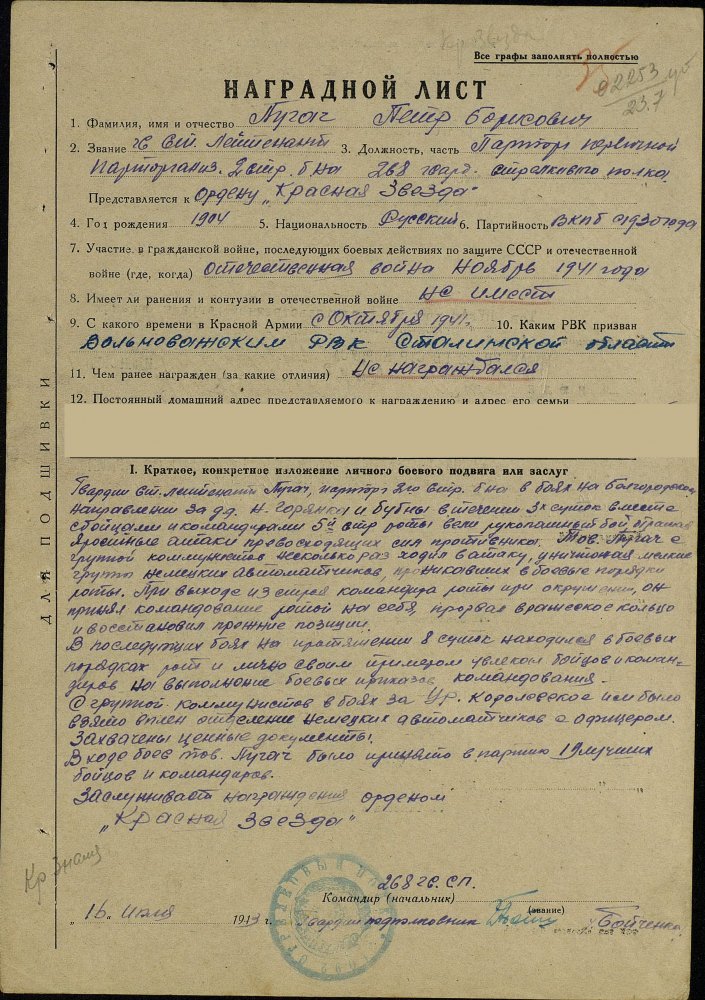 Кр Звезда
Все графы заполнять полностью
35
02253 уб
23.7
НАГРАДНОЙ ЛИСТ
1. Фамилия, имя и отчество Пугач Петр Борисович
2. Звание гв. ст. Лейтенант 3. Должность, часть Парторг первичной
парторганиз. 2 стр. б-на 268 гвард. стрелкового полка.
Представляется к ордену „Красная Звезда"
4. Год рождения 1904 5. Национальность Русский 6. Партийность ВКПб с 1930 года
7. Участие в гражданской войне, последующих боевых действиях по защите СССР и отечественной
войне (где, когда) отечественная война ноябрь 1941 года
8. Имеет ли ранения и контузии в отечественной войне не имеет
9. С какого времени в Красной Армии с октября 1941г. 10. Каким РВК призван
Вольновахским РВК Сталинской области
11. Чем ранее награжден (за какие отличия) Не награждался
12. Постоянный домашний адрес представляемого к награждению и адрес его семьи
ДЛЯ ПОДШИВКИ
I. Краткое, конкретное изложение личного боевого подвига или заслуг
Гвардии ст. лейтенант Пугач, парторг 2го стр. б-на в боях на Белгородском
направлении за дд. Н. Горянка и Бубны в течении 3х суток вместе
с бойцами и командирами 5й стр роты вели рукопашный бой, отражая
яростные атаки превосходящих сил противника. Тов. Пугач с
группой коммунистов несколько раз ходил в атаку, уничтожая мелкие
группы немецких автоматчиков, проникавших в боевые порядки
роты. При выходе из строя командира роты при окружении, он
принял командование ротой на себя, прорвал вражеское кольцо
и восстановил прежние позиции.
В последующих боях на протяжении 8 суток находился в боевых
порядках рот и лично своим примером увлекал бойцов и коман-
диров на выполнение боевых приказов командования.
С группой коммунистов в боях за Ур. Королевское им было
взято в плен отделение немецких автоматчиков с офицером.
Захвачены ценные документы.
В ходе боев тов. Пугач было принято в партию 19 лучших
бойцов и командиров.
Заслуживает награждения орденом
„Красная Звезда"
Кр Знамя
268 гв. СП.
Командир (начальник)
„16" июля 1943 г. Гвардии подполковник (звание) Бойченко